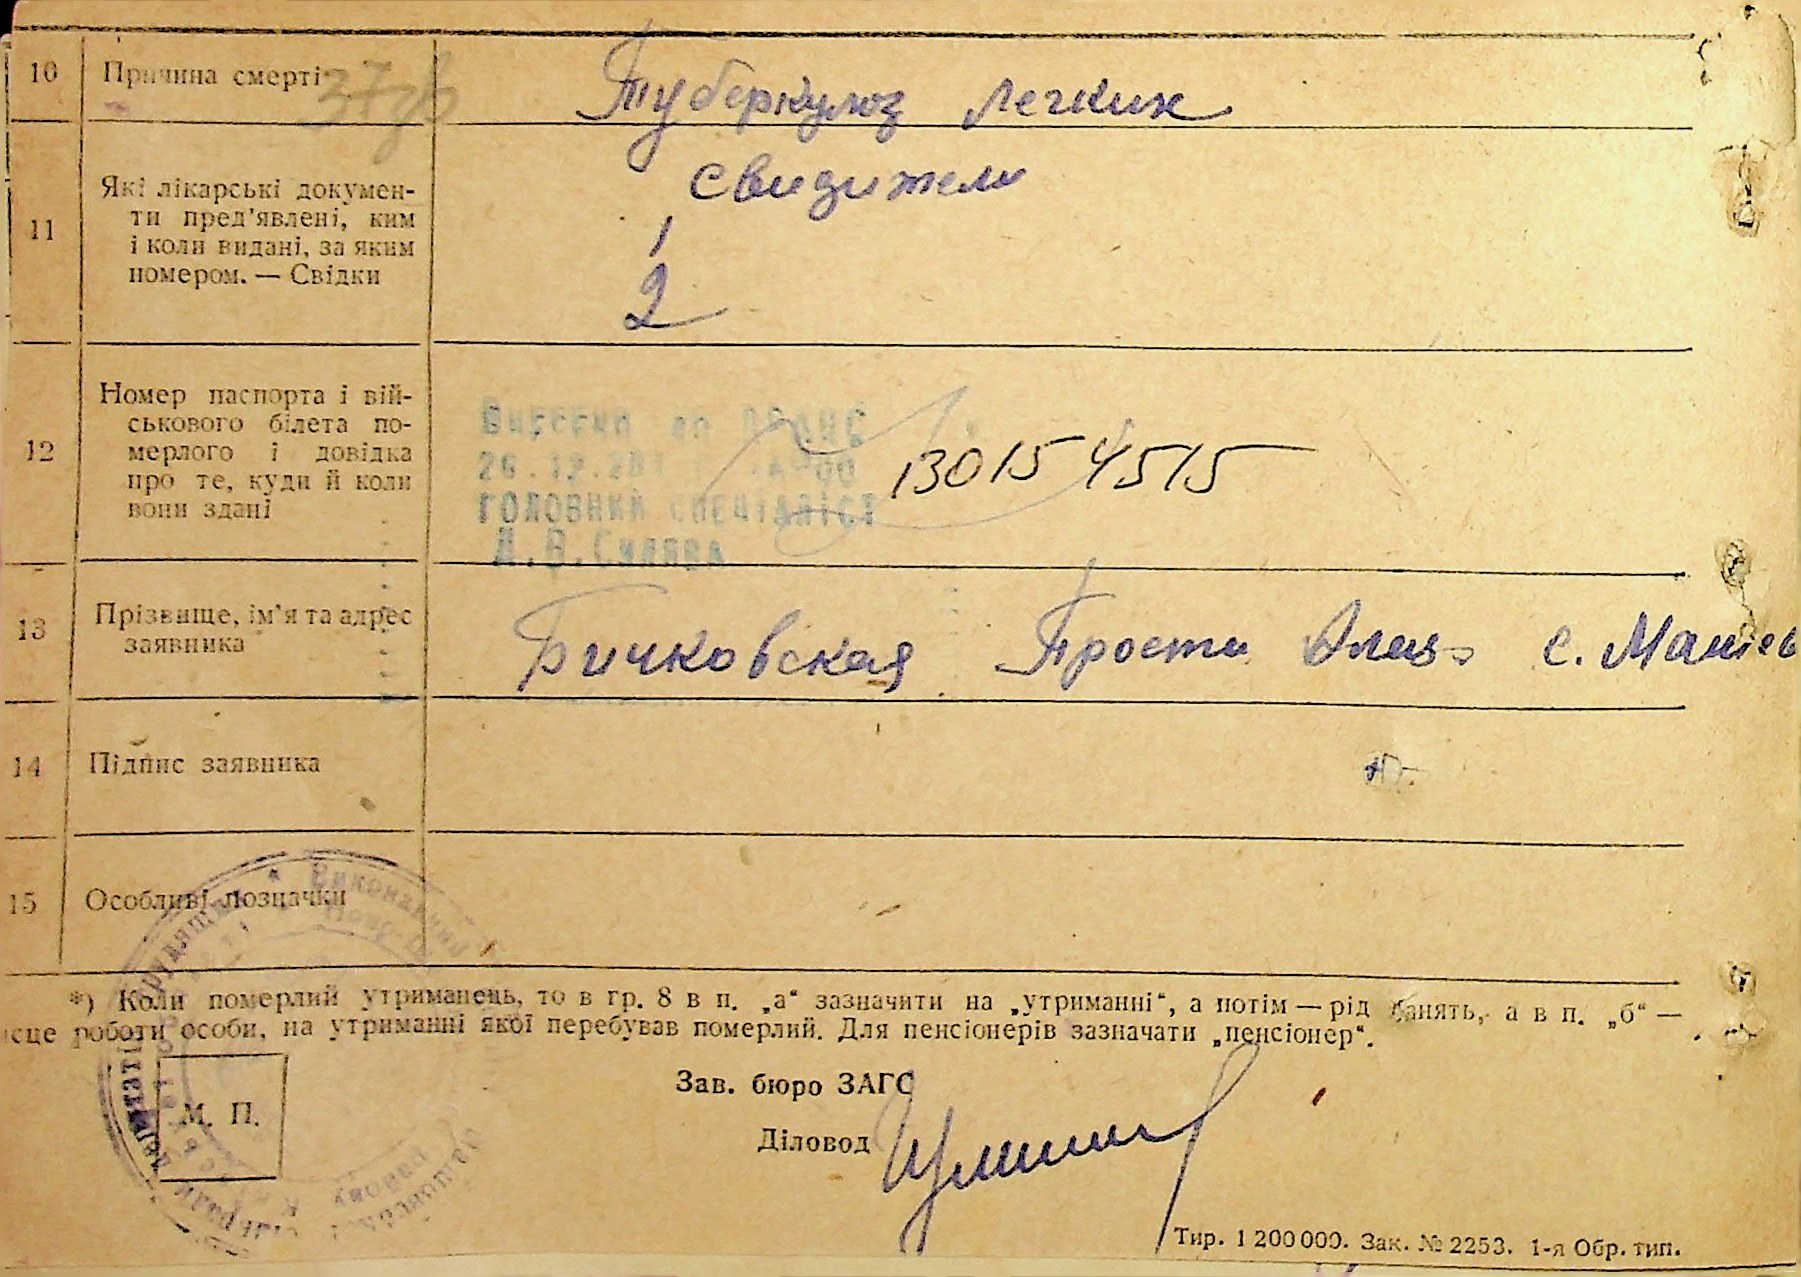 10 Причина смерті Туберкулюз легких
11 Які лікарські докумен-
ти пред'явлені, ким
і коли видані, за яким
номером. — Свідки
свидители
1
2
12 Номер паспорта і вій-
ськового білета по-
мерлого і довідка
про те, куди й коли
вони здані
Внесено до
ГОЛОВНИЙ СПЕЦІАЛІСТ
13015 4515
13 Прізвище, ім'я та адрес
заявника
Бичковская с.
14 Підпис заявника
15 Особливі позначки
*) Коли померлий утриманець, то в гр. 8 в п. „а“ зазначити на „утриманні“, а потім — рід занять, а в п. „б“ —
ісце роботи особи, на утриманні якої перебував померлий. Для пенсіонерів зазначати „пенсіонер“.
М. П.
Зав. бюро ЗАГС
Діловод
Тир. 1 200 000. Зак. № 2253. 1-я Обр. тип.